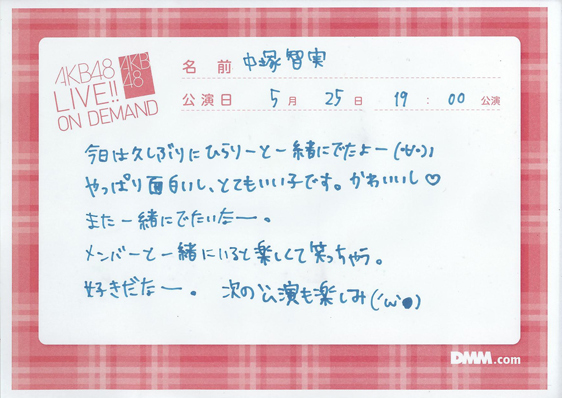 AKB48
LIVE!!
ON DEMAND
AKB
48
名前 中塚智実
公演日 5月 25日 19:00 公演
今日は久しぶりにひらりーと一緒にでたよー(・∀・)ノ
やっぱり面白いし、とてもいい子です。かわいいし♡
また一緒にでたいなー。
メンバーと一緒にいると楽しくて笑っちゃう。
好きだなー。 次の公演も楽しみ(´ω●)
DMM.com